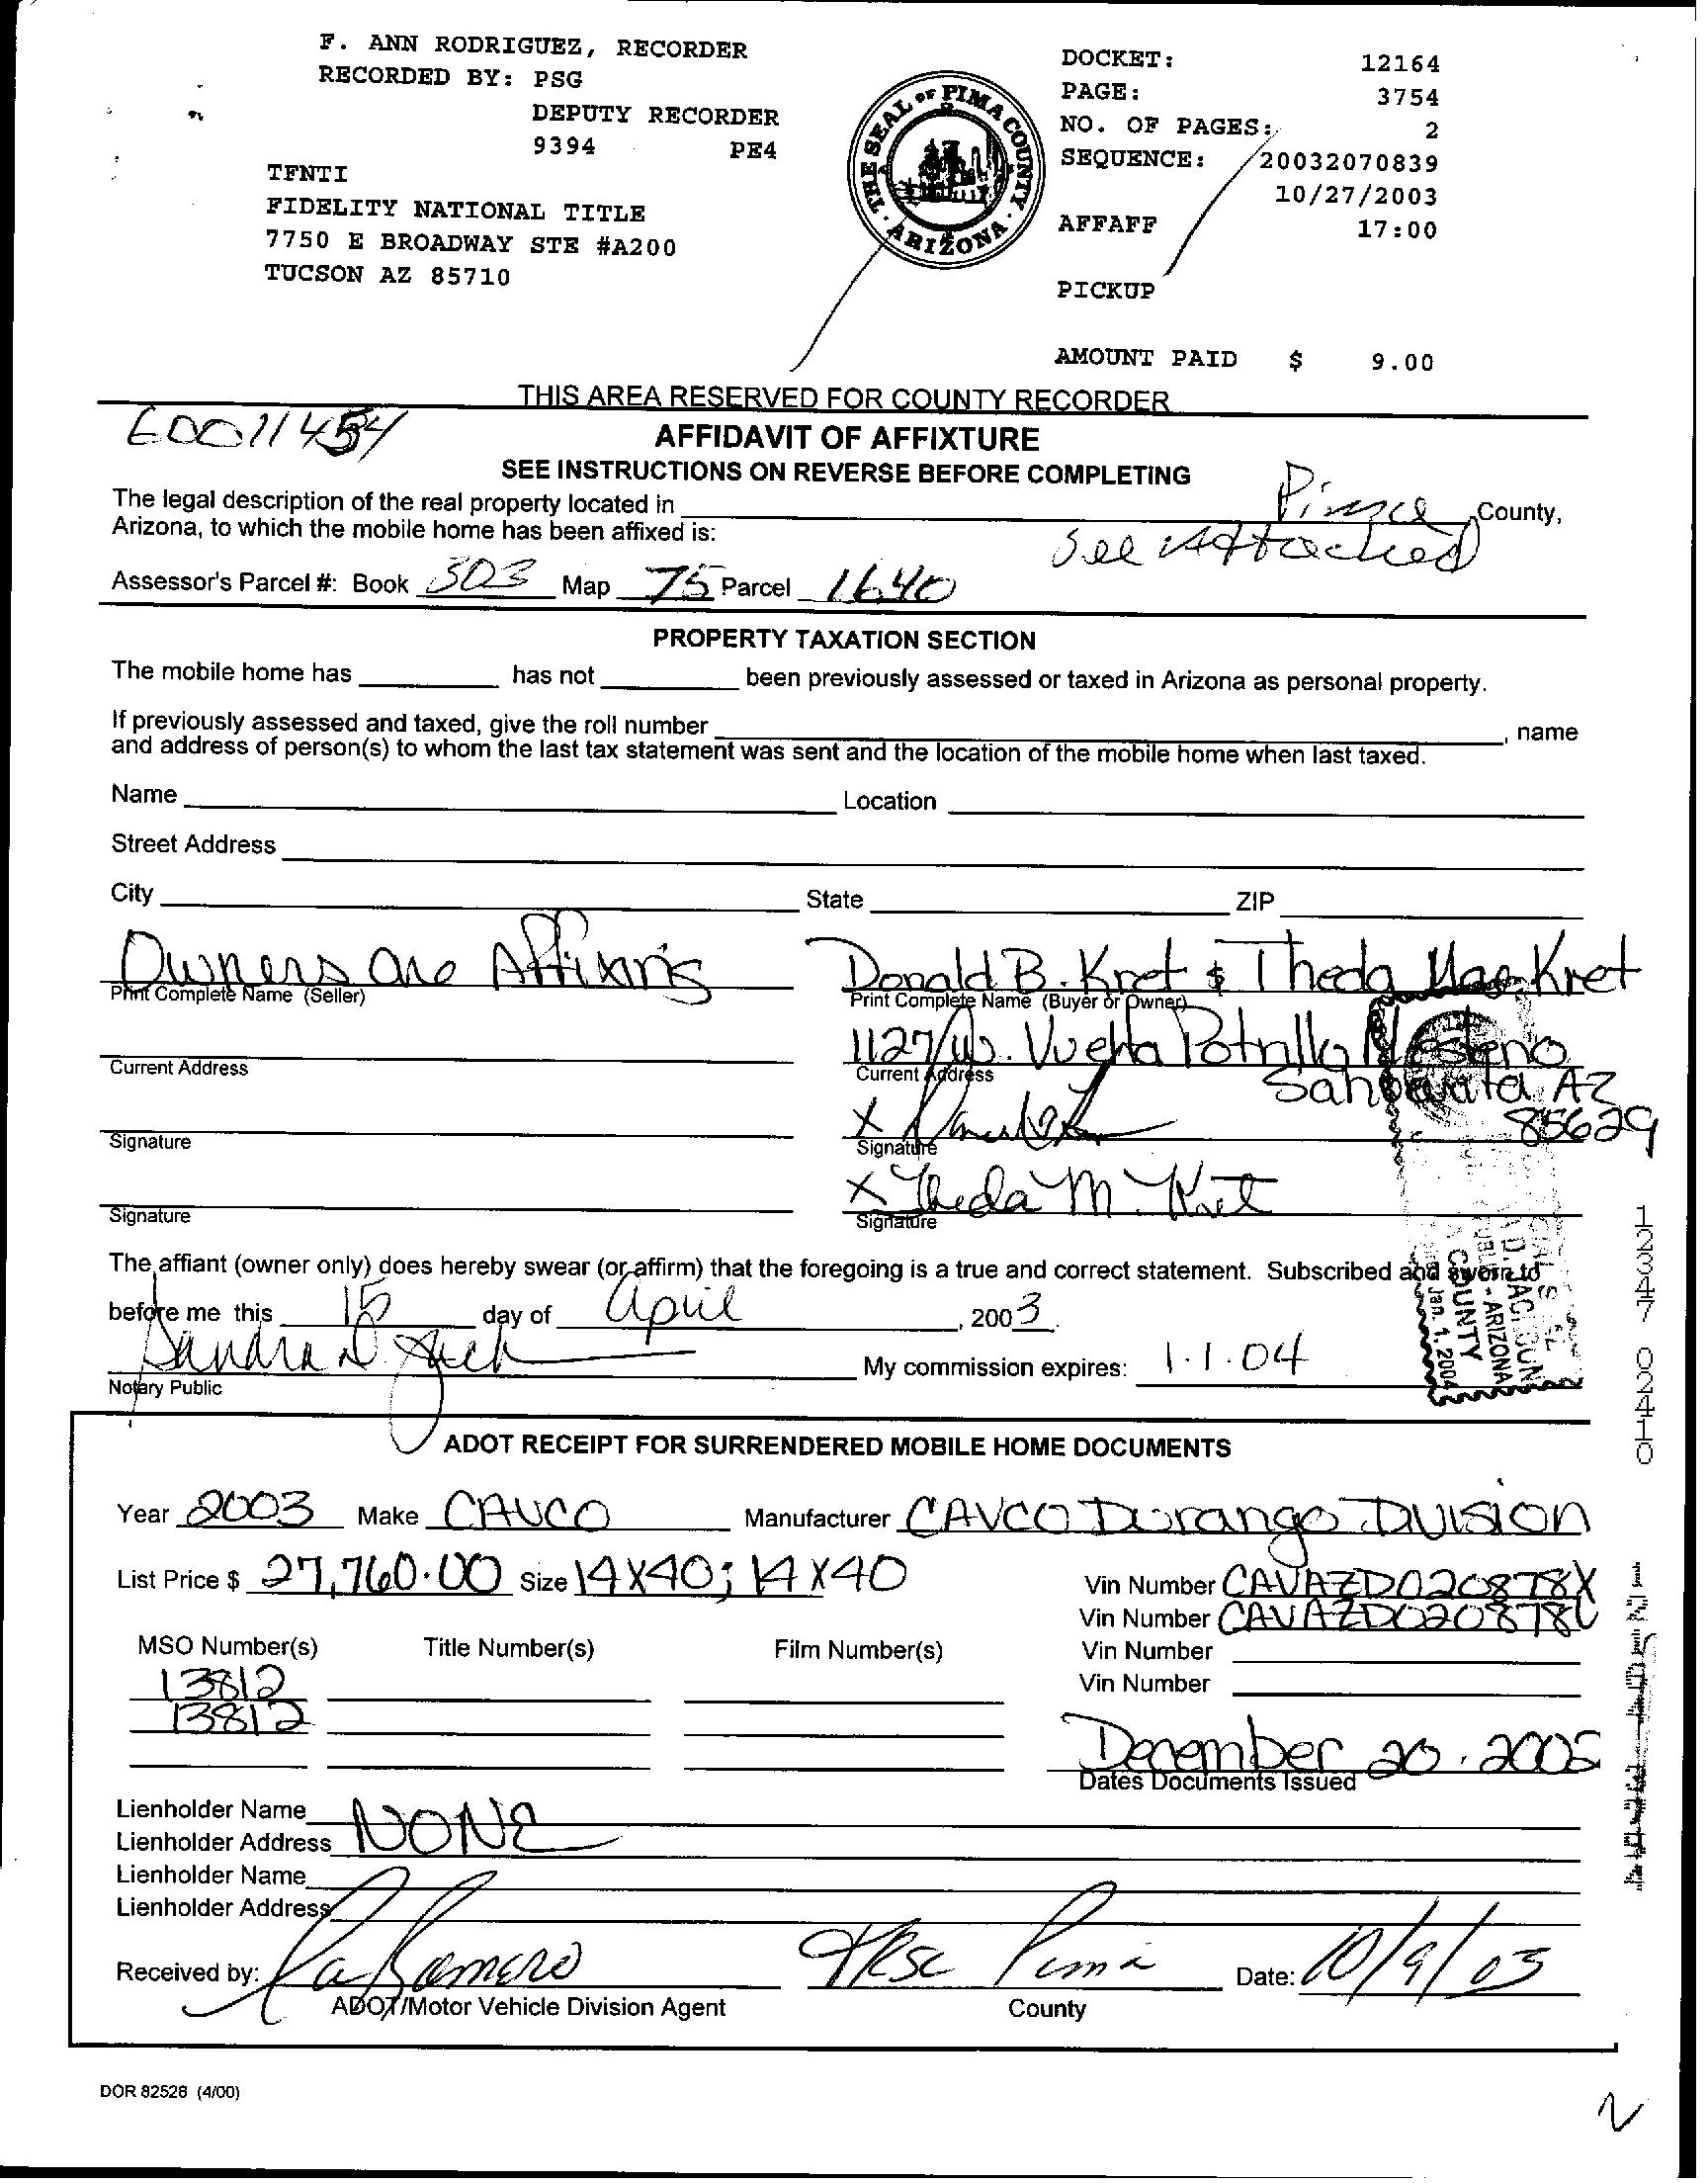 F. ANN RODRIGUEZ, RECORDER
RECORDED BY: PSG
DEPUTY RECORDER
9394 PE4
TFNTI
FIDELITY NATIONAL TITLE
7750 E BROADWAY STE #A200
TUCSON AZ 85710
THE SEAL OF PIMA COUNTY · ARIZONA ·
DOCKET: 12164
PAGE: 3754
NO. OF PAGES: 2
SEQUENCE: 20032070839
10/27/2003
AFFAFF 17:00
PICKUP
AMOUNT PAID $ 9.00
THIS AREA RESERVED FOR COUNTY RECORDER
60011454
AFFIDAVIT OF AFFIXTURE
SEE INSTRUCTIONS ON REVERSE BEFORE COMPLETING
The legal description of the real property located in Pima County,
Arizona, to which the mobile home has been affixed is: See Attached
Assessor's Parcel #: Book 303 Map 75 Parcel 1640
PROPERTY TAXATION SECTION
The mobile home has has not been previously assessed or taxed in Arizona as personal property.
If previously assessed and taxed, give the roll number , name
and address of person(s) to whom the last tax statement was sent and the location of the mobile home when last taxed.
Name Location
Street Address
City State ZIP
Owners are Affixing Donald B. Kret & Theda Mae Kret
Print Complete Name (Seller) Print Complete Name (Buyer or Owner)
1127 W. Vuelta Potrillo
Current Address Current Address
Sahuarita AZ
85629
Signature Signature
x Theda M. Kret
Signature Signature
The affiant (owner only) does hereby swear (or affirm) that the foregoing is a true and correct statement. Subscribed and sworn to
before me this 15 day of April , 2003.
My commission expires: 1.1.04
Notary Public
COUNTY
Jan. 1, 2004
12347 02410
ADOT RECEIPT FOR SURRENDERED MOBILE HOME DOCUMENTS
Year 2003 Make CAVCO Manufacturer CAVCO Durango Division
List Price $ 27,760.00 Size 14X40; 14X40 Vin Number CAVAZD020878X
Vin Number CAVAZD020878U
MSO Number(s) Title Number(s) Film Number(s) Vin Number
13812 Vin Number
13812
December 20, 2002
Dates Documents Issued
Lienholder Name NONE
Lienholder Address
Lienholder Name
Lienholder Address
Received by: Romero Pima Date: 10/9/03
ADOT/Motor Vehicle Division Agent County
DOR 82528 (4/00)